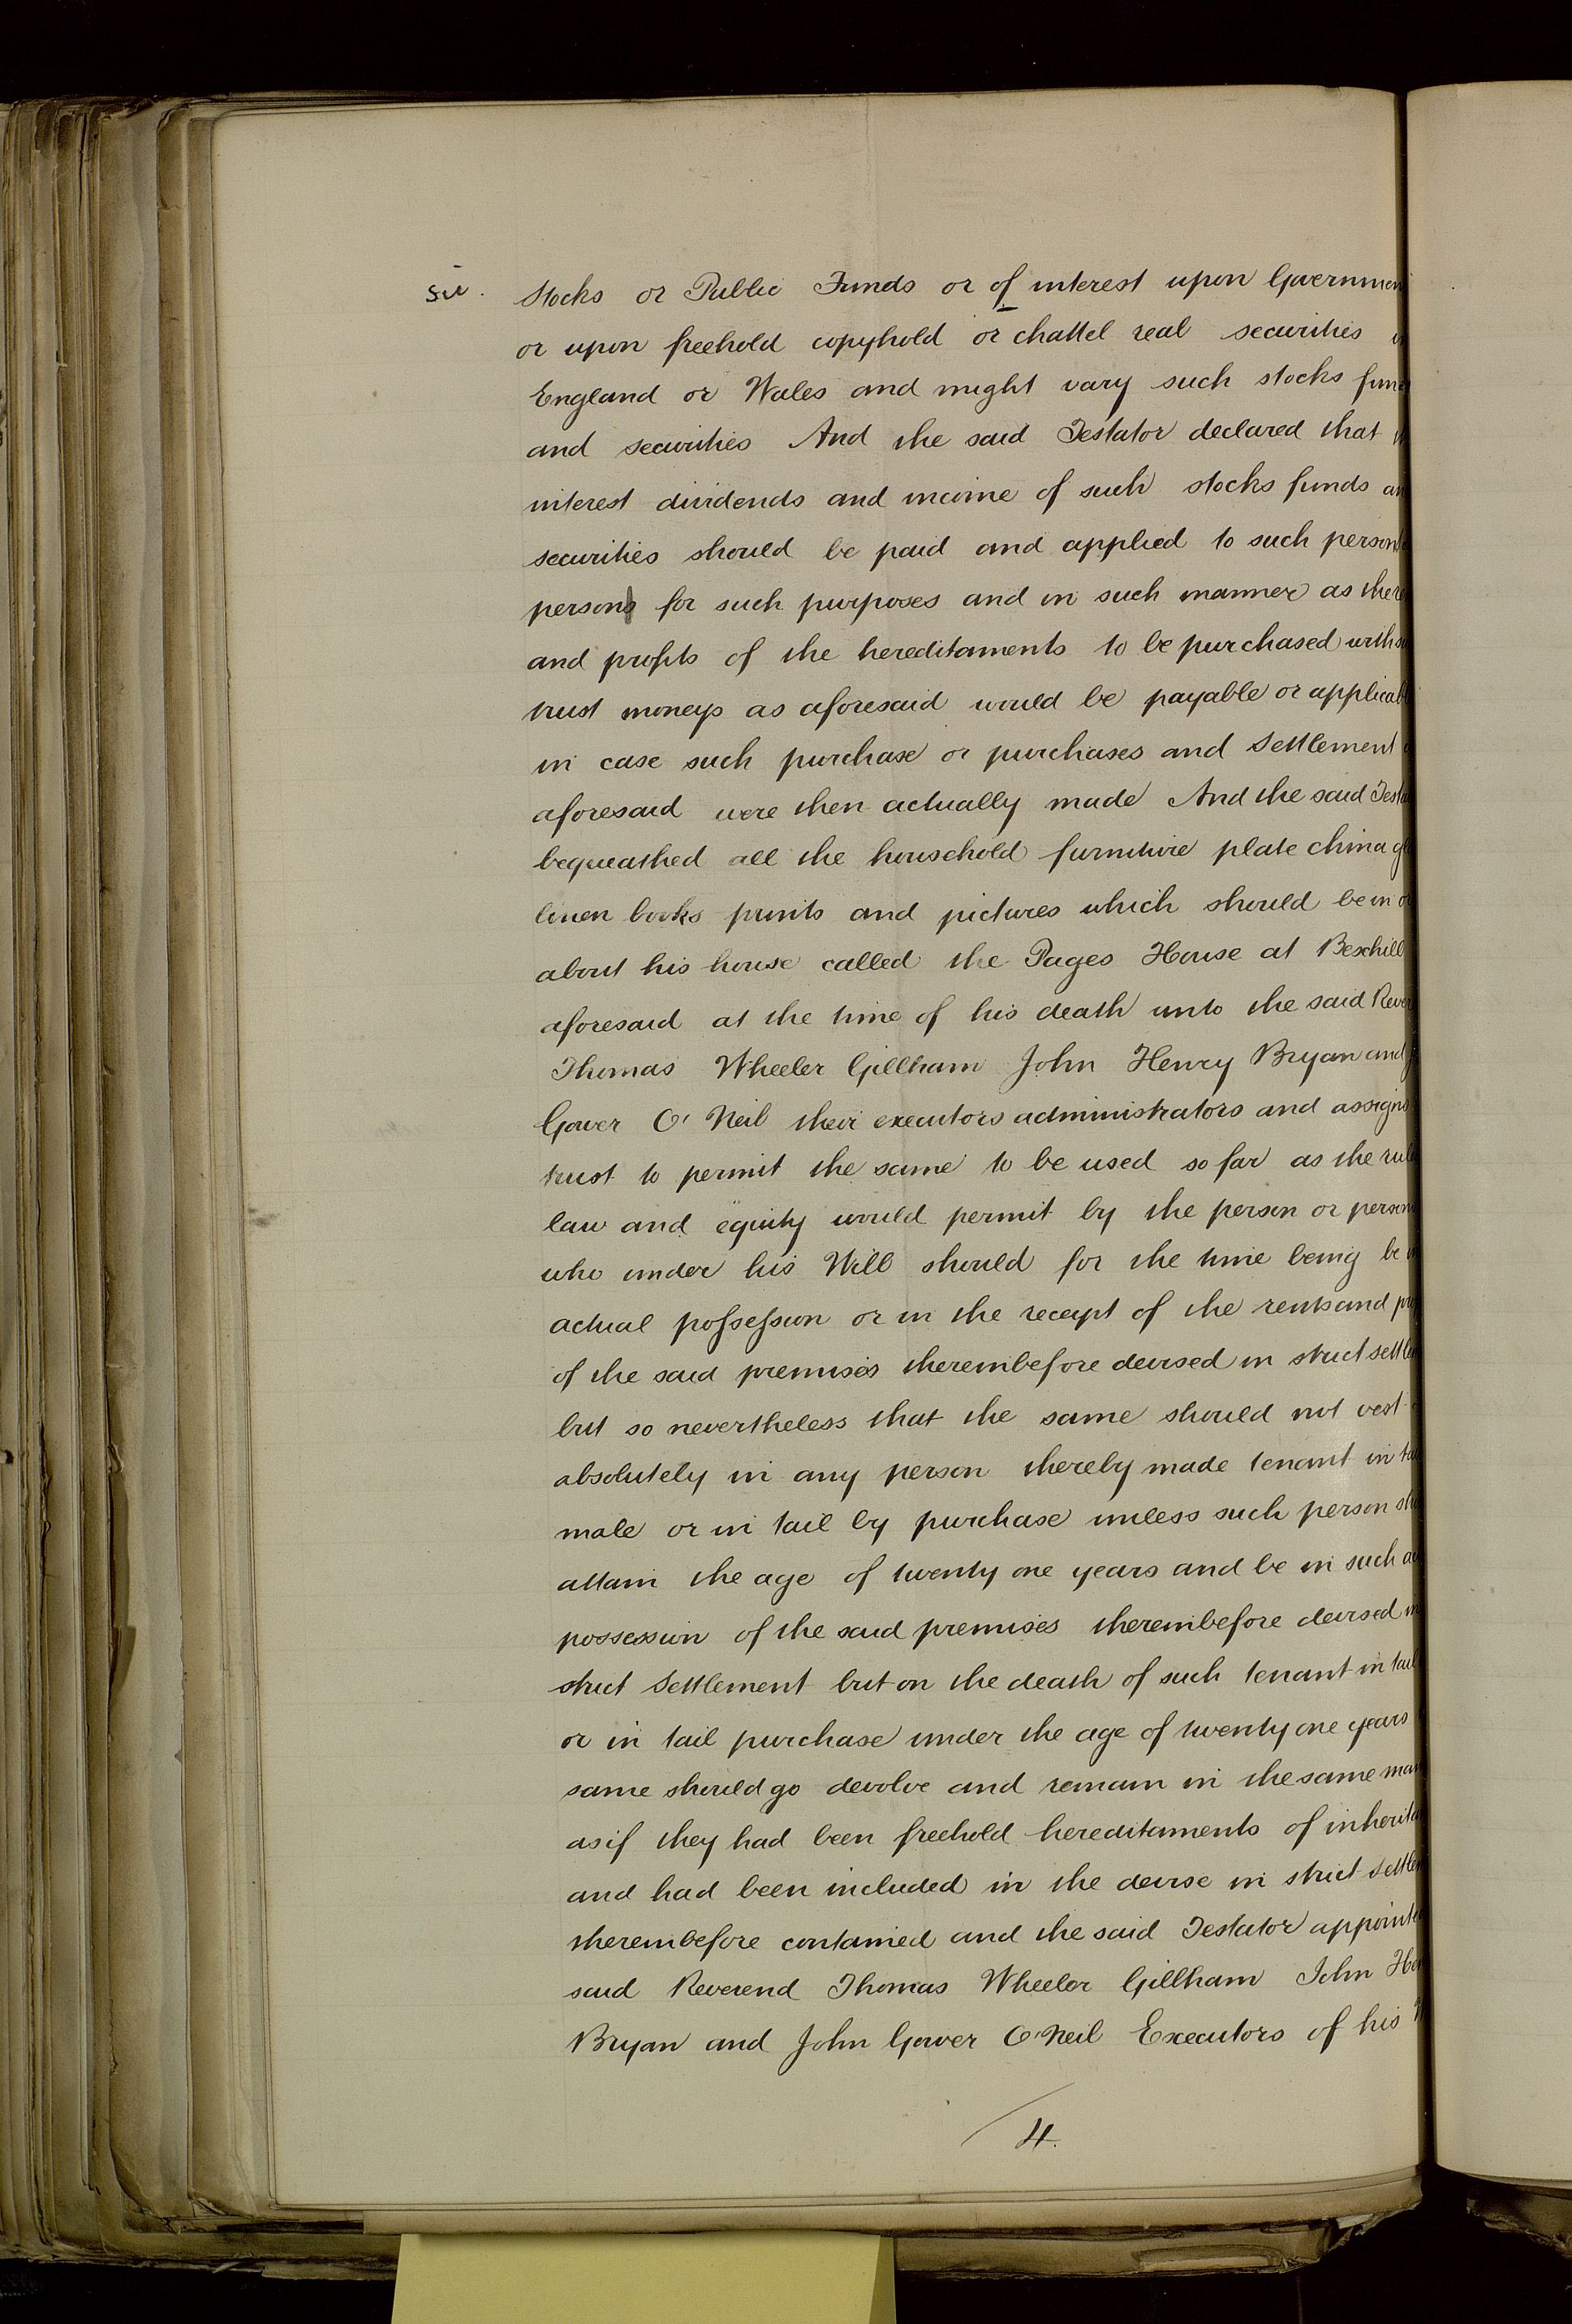 sic. Stocks or Public Funds or of interest upon Governmen
or upon freehold copyhold or chattel real securities
England or Wales and might vary such stocks fun
and securities And the said Testator declared that
interest dividends and income of such stocks funds an
securities should be paid and applied to such person
persons for such purposes and in such manner as the
and profits of the hereditaments to be purchased with
trust moneys as aforesaid would be payable or applicab
in case such purchase or purchases and Settlement
aforesaid were then actually made And the said Testa
bequeathed all the household furniture plate china gl
linen books prints and pictures which should be in o
about his house called the Pages House at Bexhill
aforesaid at the time of his death unto the said Rever
Thomas Wheeler Gillham John Henry Bryan and J
Gower O'Neil their executors administrators and assigns
trust to permit the same to be used so far as the rul
law and equity would permit by the person or person
who under his Will should for the time being be
actual possession or in the receipt of the rents and pro
of the said premises thereinbefore devised in strict settle
but so nevertheless that the same should not vest
absolutely in any person thereby made tenant in ta
male or in tail by purchase unless such person sh
attain the age of twenty one years and be in such a
possession of the said premises thereinbefore devised in
strict Settlement but on the death of such tenant in tail
or in tail purchase under the age of twenty one years
same should go devolve and remain in the same man
as if they had been freehold hereditaments of inherita
and had been included in the devise in strict Settle
thereinbefore contained and the said Testator appointe
said Reverend Thomas Wheeler Gillham John He
Bryan and John Gower O'Neil Executors of his
4.